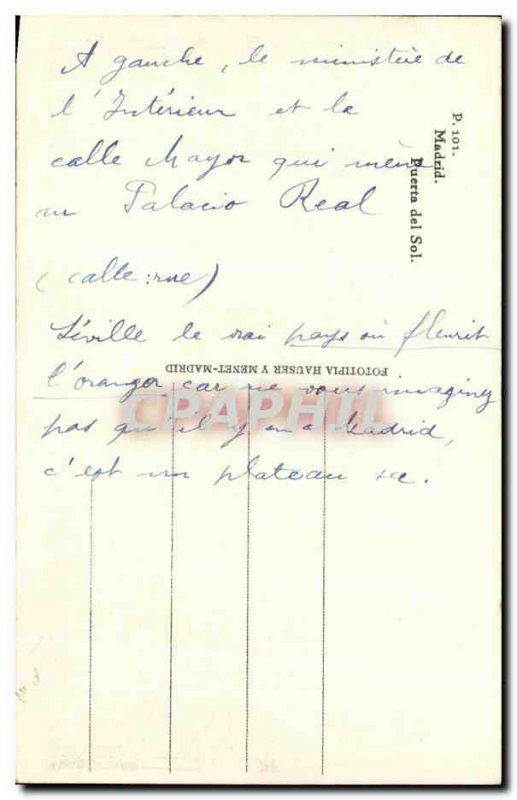 A gauche, le ministère de
l'Intérieur et la
calle Mayor qui mène
au Palacio Real
(calle : rue)
Séville le vrai pays où fleurit
l'oranger car ne vous imaginez
pas qu'il y en a Madrid,
c'est un plateau sec.
P. 101.
Madrid.
Puerta del Sol.
FOTOTIPIA HAUSER Y MENET-MADRID
CPAPHIL